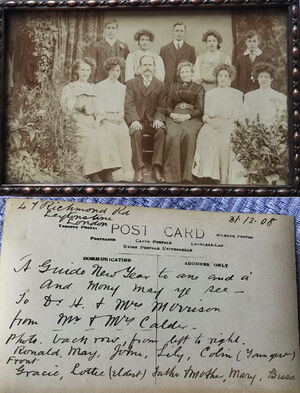 47 Richmond Rd
Leytonstone
London
31.12.08
POST CARD
COMMUNICATION
ADDRESS ONLY
A Guide New Year to ane and a'
And Mony may ye see —
To Dr H. & Mrs Morrison
from Mr & Mrs Calder.
Photo. back row, from left to right.
Ronald, May, John, Lily, Colin (Youngest)
Front
Gracie, Lottie (eldest) Father & Mother, Mary, Bessie